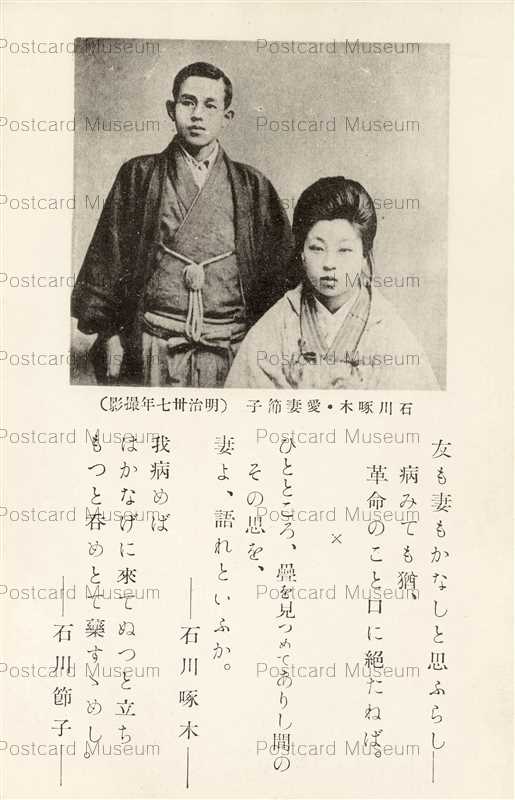 石川啄木・愛妻節子 (明治卅七年撮影)
友も妻もかなしと思ふらし――
病みても猶、
革命のこと口に絶たねば。
×
ひとところ、疊を見つめてありし間の
その思を、
妻よ、語れといふか。
――石川啄木――
我病めば
はかなげに來てぬつと立ち
もつと呑めとて藥すゝめし。
――石川節子――
Postcard Museum